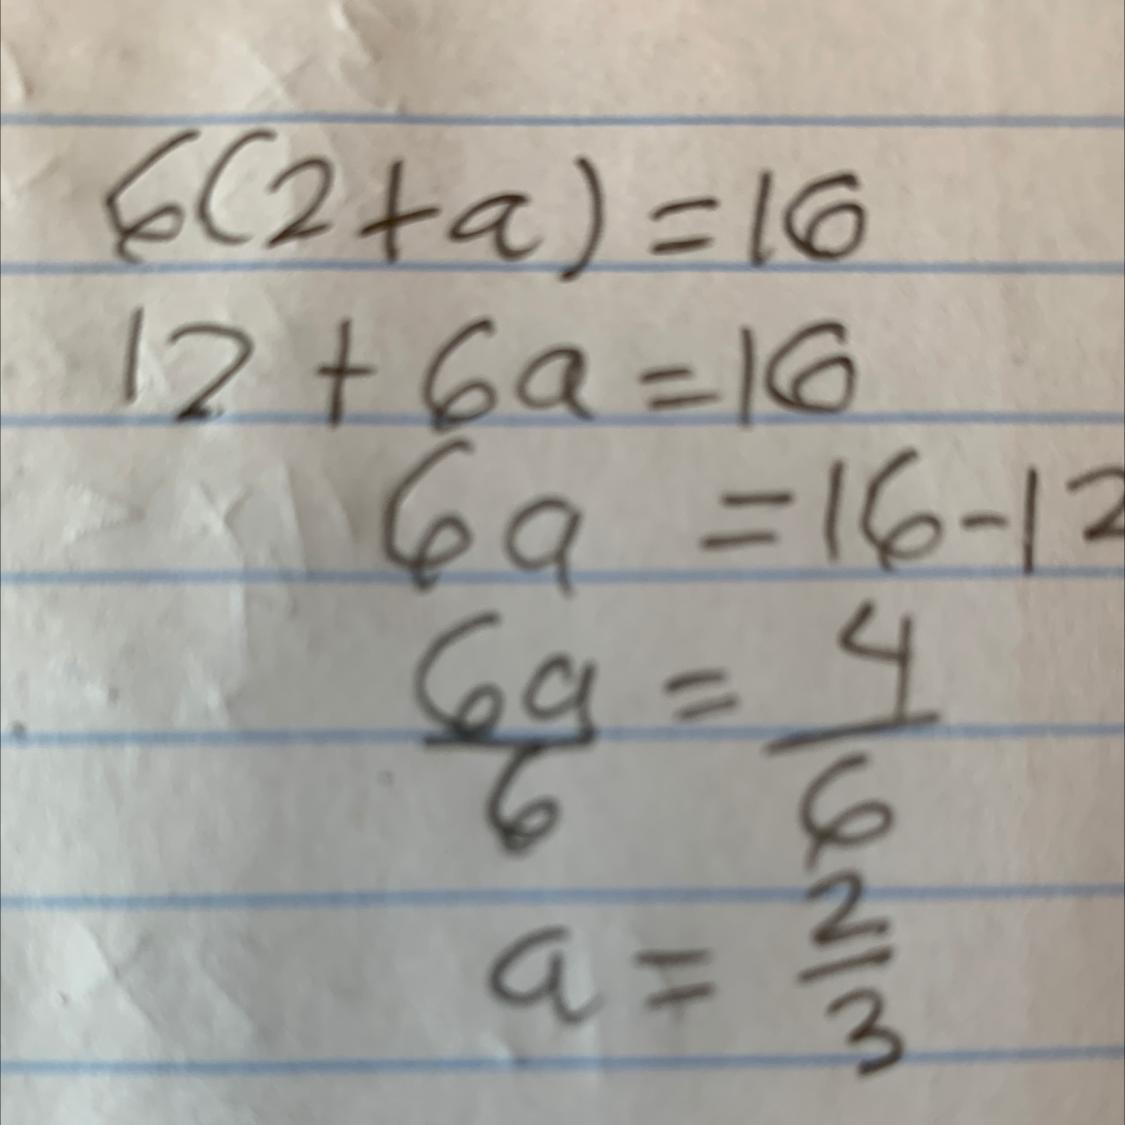 6(2+a)=16
12+6a=16
6a =16-12
6a/6 = 4/6
a = 2/3